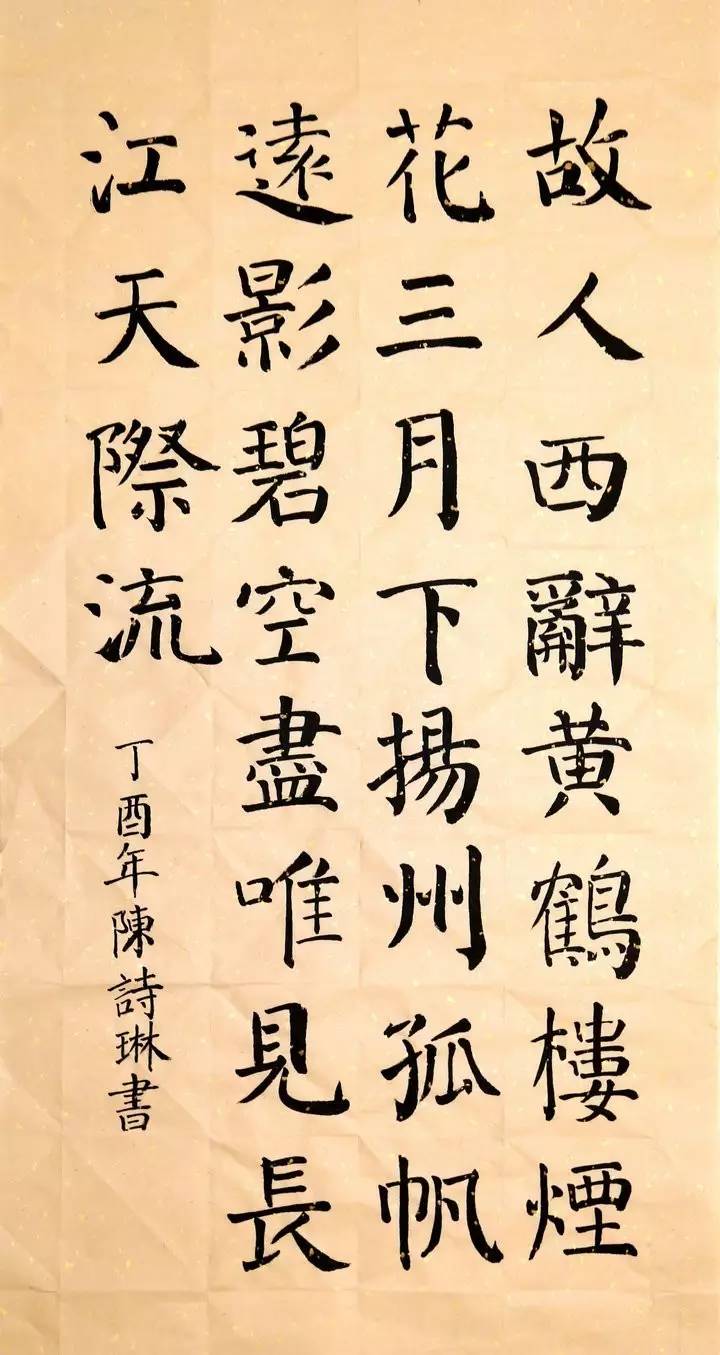 故人西辭黄鶴樓煙
花三月下揚州孤帆
遠影碧空盡唯見長
江天際流
丁酉年陳詩琳書